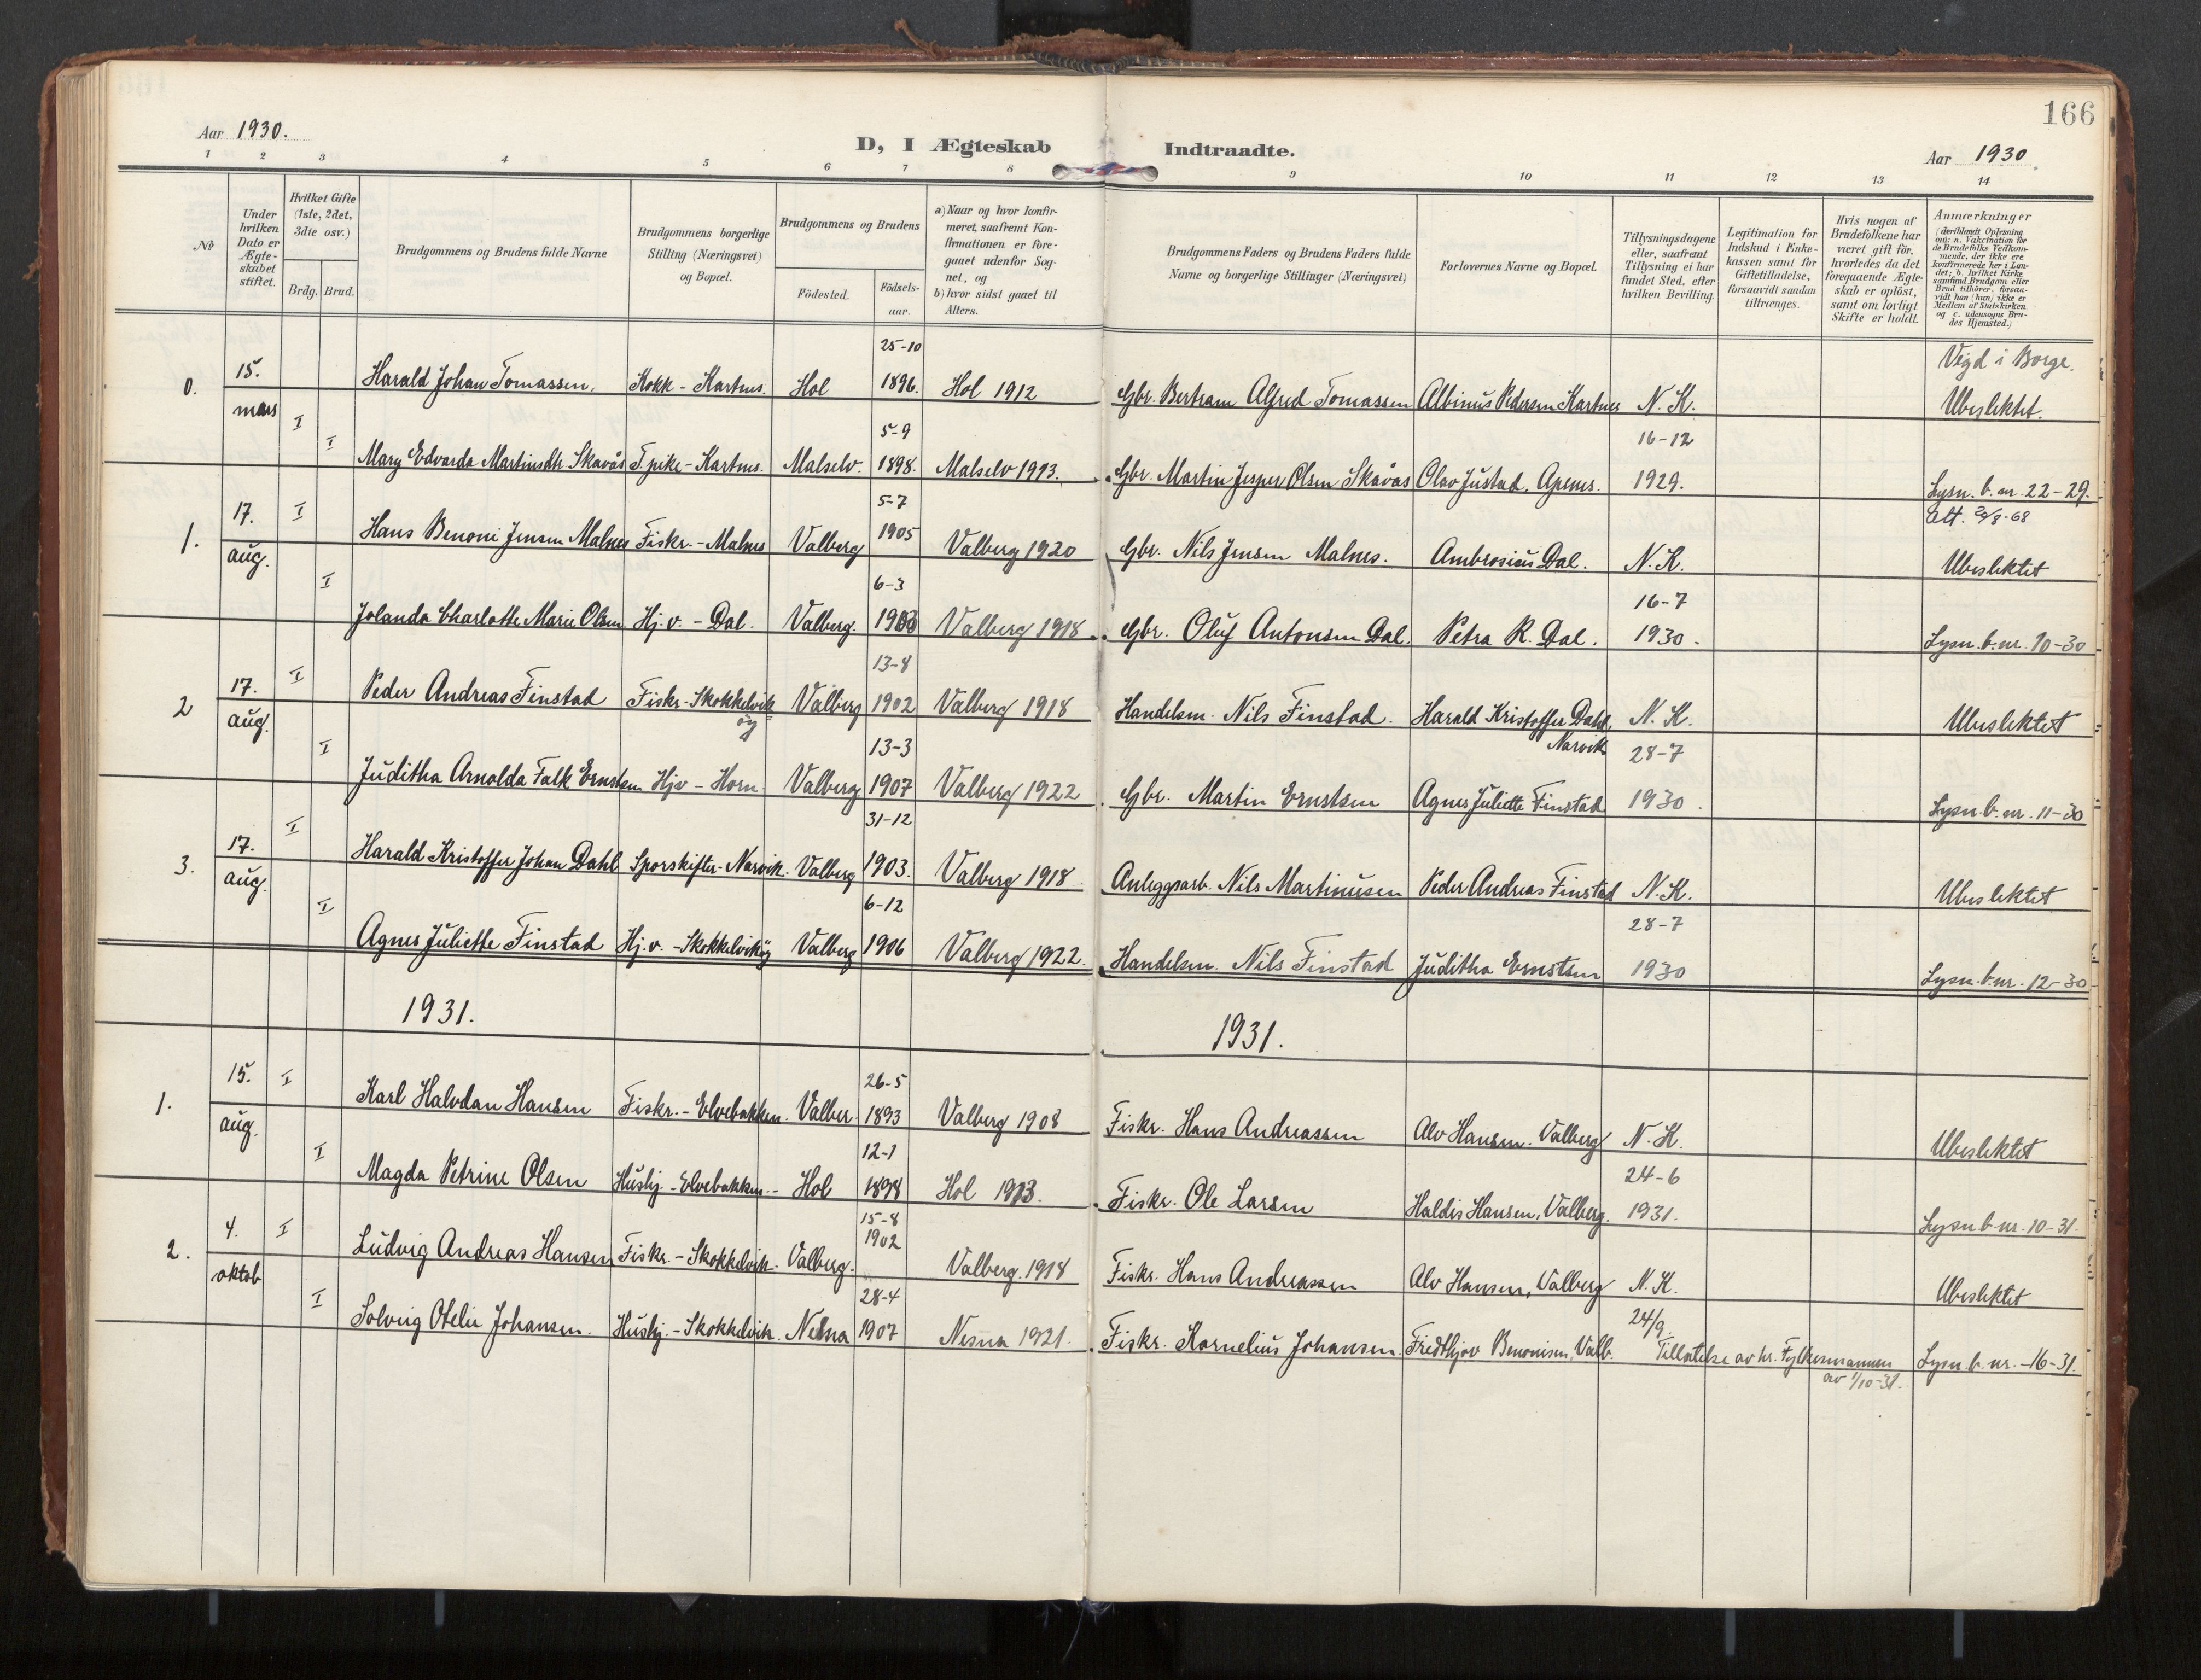 166
Aar 1930.
D, I Ægteskab Indtraadte.
Aar 1930
1 2 3 4 5 6 7 8 9 10 11 12 13 14
№
Under hvilken Dato er Ægteskabet stiftet.
Hvilket Gifte (1ste, 2det, 3die osv.)
Brdg. Brud.
Brudgommens og Brudens fulde Navne
Brudgommens borgerlige Stilling (Næringsvei) og Bopæl.
Brudgommens og Brudens
Födested.
Födsels-aar.
a) Naar og hvor konfir-
meret, saafremt Kon-
firmationen er fore-
gaaet udenfor Sog-
net, og
b) hvor sidst gaaet til
Alters.
Brudgommens Faders og Brudens Faders fulde
Navne og borgerlige Stillinger (Næringsvei)
Forlovernes Navne og Bopæl.
Tillysningsdagene
eller, saafremt
Tillysning ei har
fundet Sted, efter
hvilken Bevilling.
Legitimation for
Indskud i Enke-
kassen samt for
Giftetilladelse,
forsaavidt saadan
tiltrænges.
Hvis nogen af
Brudefolkene har
været gift för,
hvorledes da det
foregaaende Ægte-
skab er oplöst,
samt om lovligt
Skifte er holdt.
Anmærkninger
(deriblandt Oplysning
om: a. Vakcination for
de Brudefolks Vedkom-
mende, der ikke ere
konfirmerede her i Lan-
det; b. hvilket Kirke
samfund Brudgom eller
Brud tilhörer, forsaa-
vidt han (hun) ikke er
Medlem af Statskirken
og c. udensogns Bru-
des Hjemsted.)
0. 15. mars I Harald Johan Tomassen. Kokk - Kartnes. Hol 25-10 1896. Hol 1912 Gbr. Bertram Alfred Tomassen Albinus Pedersen Kartnes N. K. Vigd i Borge. Ubeslektet.
I Mary Edvarda Martinsdtr Skavås T.pike - Kartnes. Malselv. 5-9 1898. Malselv 1913. Gbr. Martin Jesper Olsen Skåvås Olav Justad, Apenes. 16-12 1929. Lysn. b. nr. 22-29.
1. 17. aug. I Hans Benoni Jensen Malnes Fiskr. - Malnes Valberg 5-7 1905 Valberg 1920 Gbr. Nils Jensen Malnes. Ambrosius Dal. N. K. Att. 20/8-68 Ubeslektet
I Jolanda Charlotte Marie Olsen Hj. v. - Dal. Valberg. 6-3 1903 Valberg 1918 Gbr. Oluf Antonsen Dal. Petra R. Dal. 16-7 1930. Lysn. b. nr. 10-30
2 17. aug. I Peder Andreas Finstad Fiskr - Skokkelvik öy Valberg 13-8 1902 Valberg 1918 Handelsm. Nils Finstad. Harald Kristoffer Dahl, Narvik N. K. Ubeslektet
I Juditha Arnolda Falk Ernstsen Hjv - Horn. Valberg 13-3 1907 Valberg 1922 Gbr. Martin Ernstsen Agnes Juliette Finstad 28-7 1930. Lysn. b. nr. 11-30
3. 17. aug. I Harald Kristoffer Johan Dahl Sporskifter - Narvik. Valberg 31-12 1903. Valberg 1918 Anleggsarb. Nils Martinusen Peder Andreas Finstad N. K. Ubeslektet
I Agnes Juliette Finstad Hj. v. - Skokkelviköy Valberg 6-12 1906 Valberg 1922. Handelsm. Nils Finstad Juditha Ernstsen 28-7 1930 Lysn. b. nr. 12-30
1931. 1931.
1. 15. aug. I Karl Halvdan Hansen Fiskr. - Elvebakken. Valber. 26-5 1893 Valberg 1908 Fiskr. Hans Andreassen Alv Hansen. Valberg N. K. Ubeslektet
I Magda Petrine Olsen Huslj. - Elvebakken - Hol 12-1 1898 Hol 1913. Fiskr. Ole Larsen Haldis Hansen, Valberg. 24-6 1931. Lysn b. nr. 10-31.
2. 4. oktob I Ludvig Andreas Hansen Fiskr. - Skokkelvik. Valberg. 15-8 1902 Valberg. 1918 Fiskr. Hans Andreassen Alv Hansen, Valberg N. K. Ubeslektet
I Solveig Otelie Johansen. Huslj. - Skokkelvik. Nesna 28-4 1907 Nesna 1921. Fiskr. Kornelius Johansen. Fredthjov Benonisen, Valb. 24/9 Tillatelse av hr. Fylkesmannen av 1/10-31. Lysn. b. nr. -16-31.